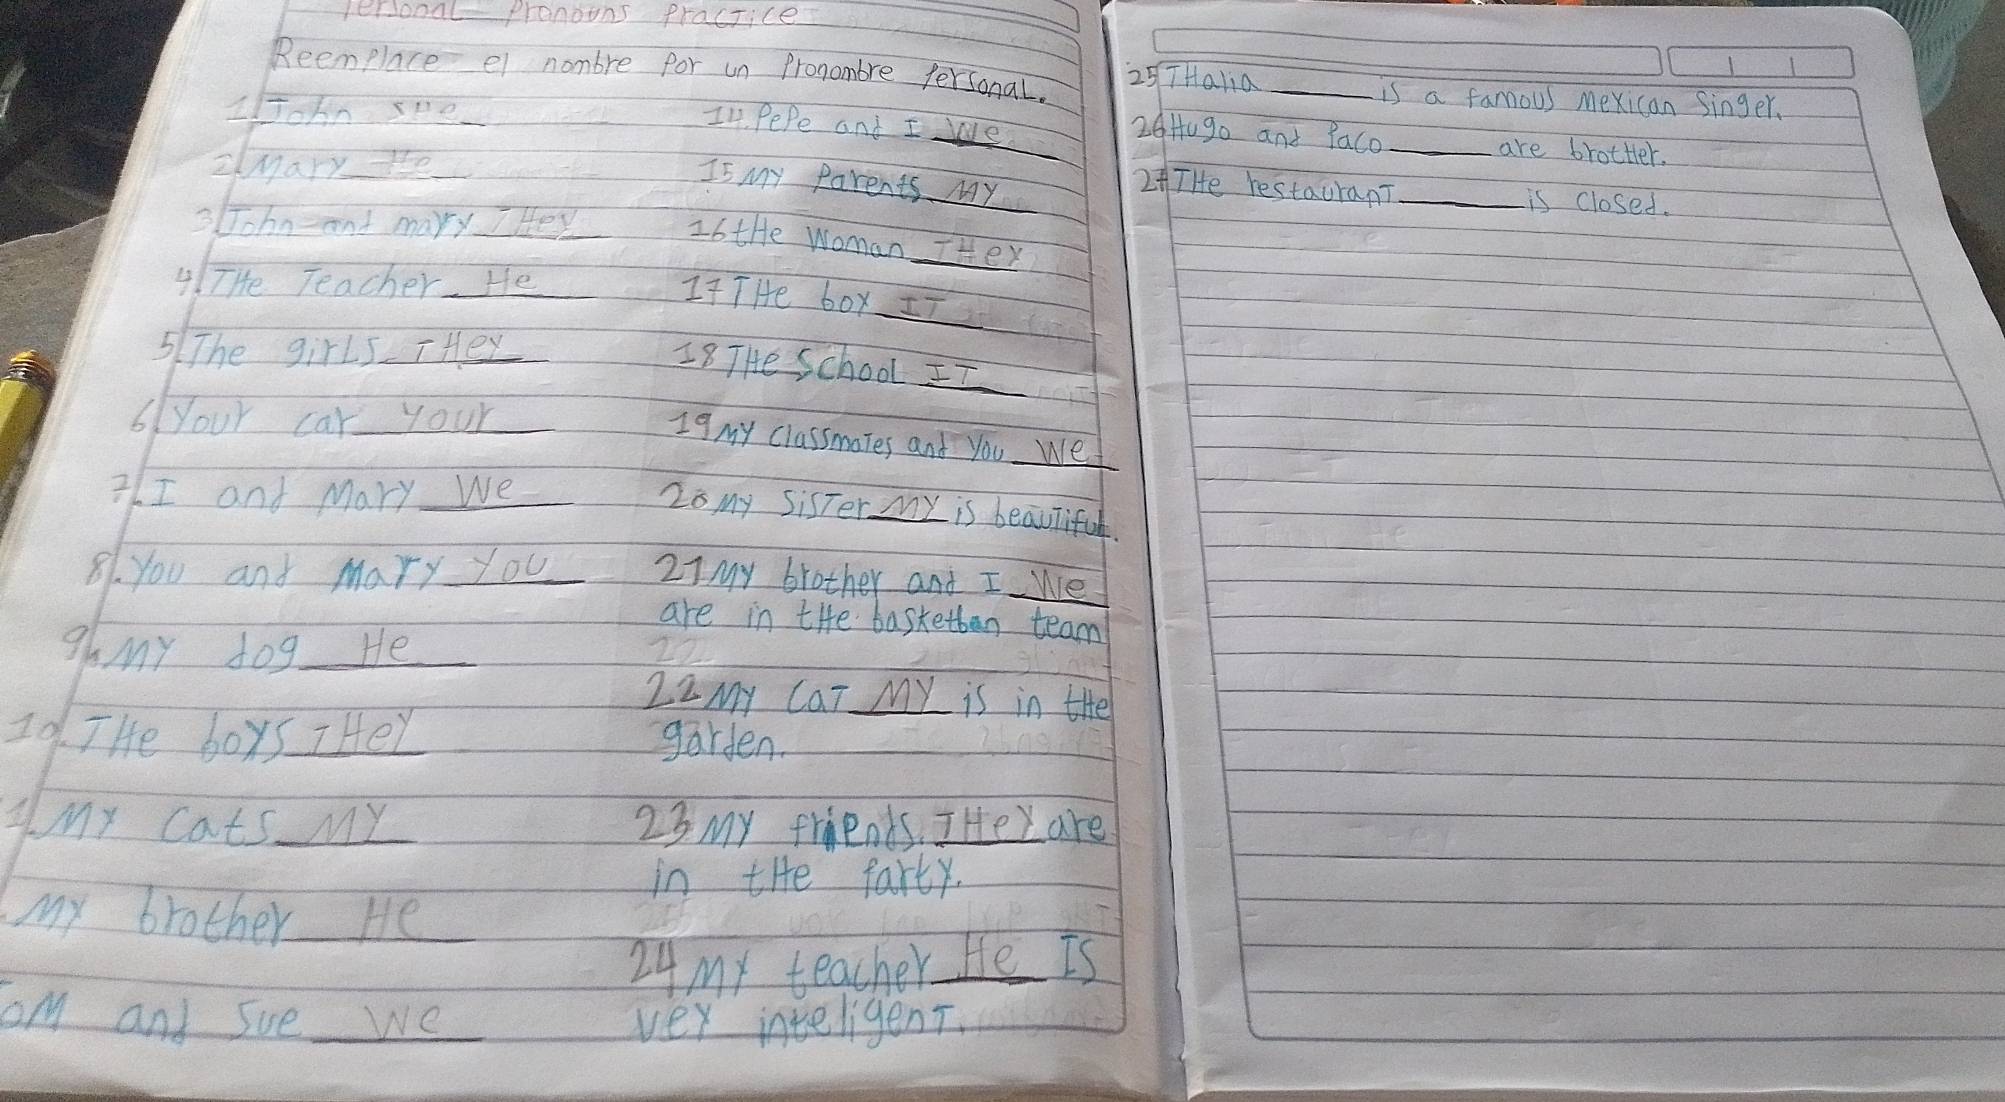 Personal Pronouns Practice
Reemplace el nombre por un Pronombre Personal.
1 John she
2 Mary He
3 John and mary THey
4. THe Teacher He
5 The girls THey
6 Your car your
7. I and Mary We
8. You and Mary you
9. MY dog He
10. THe boys THey
MY cats MY
My brother He
Tom and Sue We
14. Pepe and I We
15 MY Parents MY
16 tHe Woman THey
17 THe box IT
18 THe School IT
19 MY classmates and you We
20 My SisTer MY is beautiful.
21 MY brother and I We
are in tHe basketban team
22
22 My CaT MY is in tHe
garden.
23 MY friends. THey are
in tHe farty.
24 My teacher He IS
vey inteligenT.
25 THalia ______ is a famous Mexican Singer.
26 Hugo and Paco ______ are brotHer.
27 THe restauranT ______ is closed.